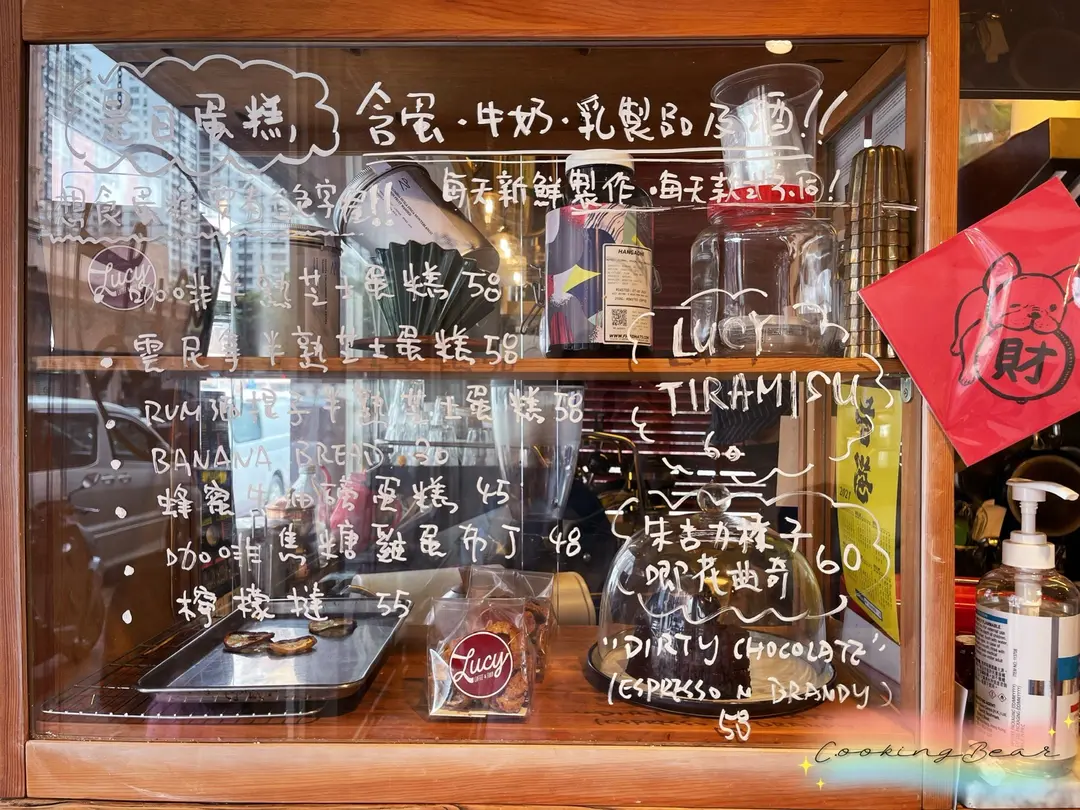 是日蛋糕, 含蛋.牛奶.乳製品及酒!!
想食蛋糕
每天新鮮製作.每天款式不同!
咖啡半熟芝士蛋糕 58
雲尼拿半熟芝士蛋糕 58
RUM酒提子半熟芝士蛋糕 58
BANANA BREAD 30
蜂蜜牛油磅蛋糕 45
咖啡焦糖雞蛋布丁 48
檸檬撻 55
LUCY
TIRAMISU
60
朱古力榛子
唧花曲奇 60
"DIRTY CHOCOLATE"
(ESPRESSO N BRANDY)
58
Lucy
Lucy
財
2021
CookingBear